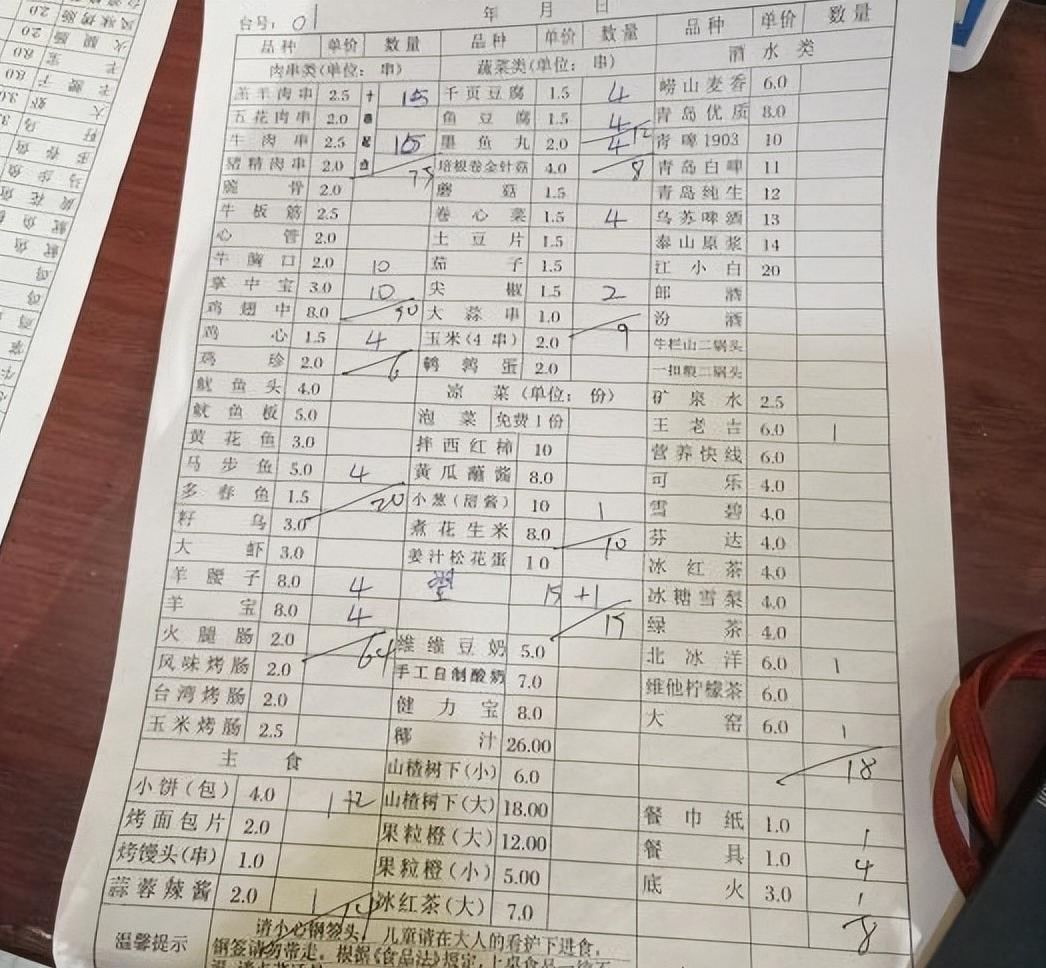 台号: 01 年 月 日
品种 单价 数量 品种 单价 数量 品种 单价 数量
肉串类(单位: 串) 蔬菜类(单位: 串) 酒水类
羔羊肉串 2.5 十 15 千页豆腐 1.5 4 崂山麦香 6.0
五花肉串 2.0 串 鱼豆腐 1.5 4 青岛优质 8.0
牛肉串 2.5 起 15 墨鱼丸 2.0 4 12 青啤1903 10
猪精肉串 2.0 点 75 培根卷金针菇 4.0 8 青岛白啤 11
脆骨 2.0 蘑菇 1.5 青岛纯生 12
牛板筋 2.5 卷心菜 1.5 4 乌苏啤酒 13
心管 2.0 土豆片 1.5 泰山原浆 14
牛胸口 2.0 10 茄子 1.5 江小白 20
掌中宝 3.0 10 尖椒 1.5 2 郎酒
鸡翅中 8.0 50 大蒜串 1.0 汾酒
鸡心 1.5 4 玉米(4串) 2.0 9 牛栏山二锅头
鸡珍 2.0 6 鹌鹑蛋 2.0 一担粮二锅头
鱿鱼头 4.0 凉菜(单位: 份) 矿泉水 2.5
鱿鱼板 5.0 泡菜 免费1份 王老吉 6.0 1
黄花鱼 3.0 拌西红柿 10 营养快线 6.0
马步鱼 5.0 4 黄瓜蘸酱 8.0 可乐 4.0
多春鱼 1.5 20 小葱(甜酱) 10 1 雪碧 4.0
籽乌 3.0 煮花生米 8.0 10 芬达 4.0
大虾 3.0 姜汁松花蛋 10 冰红茶 4.0
羊腰子 8.0 4 15 +1 冰糖雪梨 4.0
羊宝 8.0 4 15 绿茶 4.0
火腿肠 2.0 64 维维豆奶 5.0 北冰洋 6.0 1
风味烤肠 2.0 手工自制酸奶 7.0 维他柠檬茶 6.0
台湾烤肠 2.0 健力宝 8.0 大窑 6.0 1
玉米烤肠 2.5 椰汁 26.00 18
主食 山楂树下(小) 6.0
小饼(包) 4.0 1+2 山楂树下(大) 18.00 餐巾纸 1.0 1
烤面包片 2.0 果粒橙(大) 12.00 餐具 1.0 4
烤馒头(串) 1.0 果粒橙(小) 5.00 底火 3.0 1
蒜蓉辣酱 2.0 1 14 冰红茶(大) 7.0 8
温馨提示 请小心钢签头, 儿童请在大人的看护下进食,
钢签请勿带走。根据《食品法》规定,上桌食品一律不